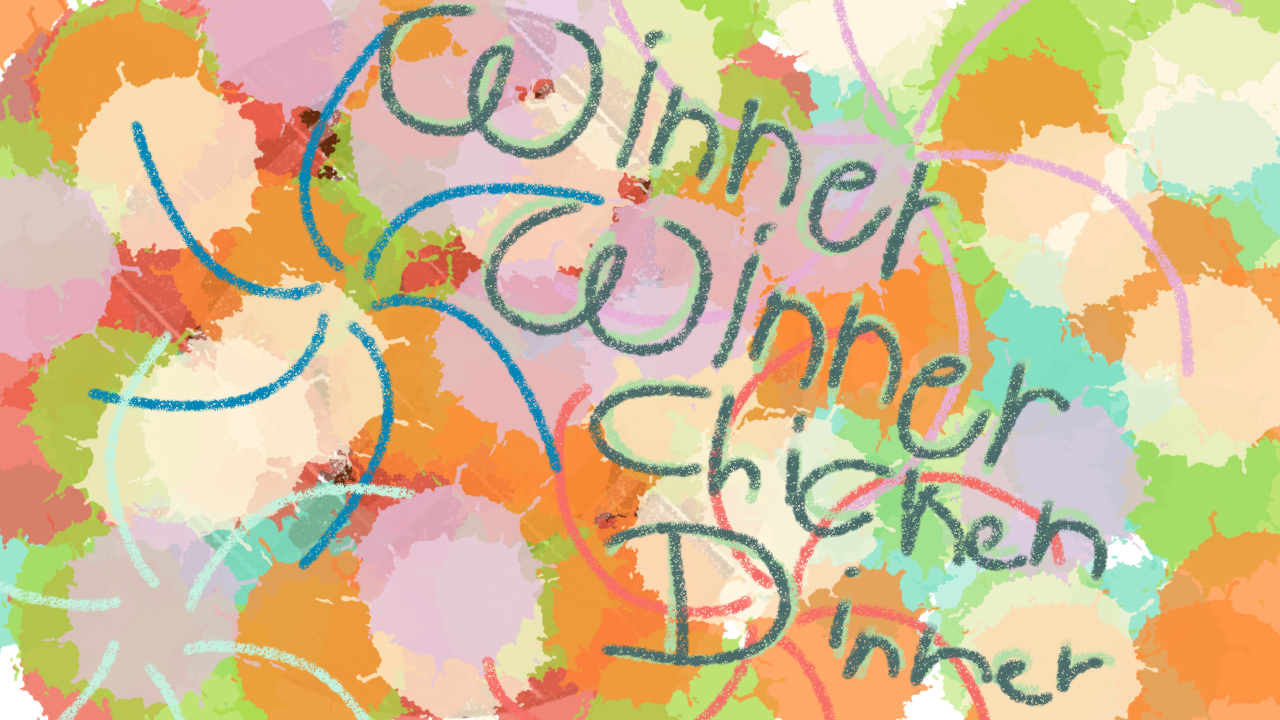 Winner
Winner
Chicken
Dinner